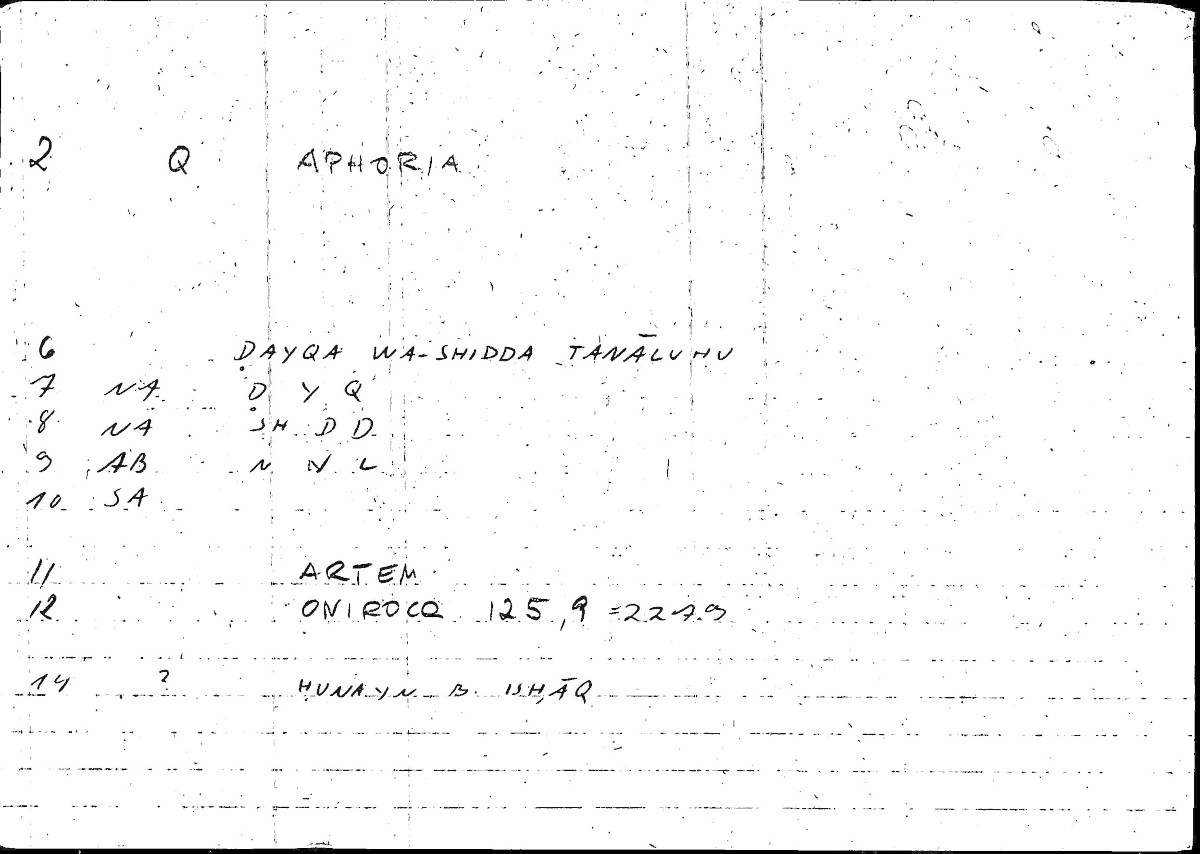 2 Q APHORIA
6 ḌAYQA WA-SHIDDA TANĀLUHU
7 NA Ḍ Y Q
8 NA SH D D
9 AB N Y L
10 SA
11 ARTEM
12 ONIROCR 125,9 =227.9
14 ? ḤUNAYN B. ISḤĀQ